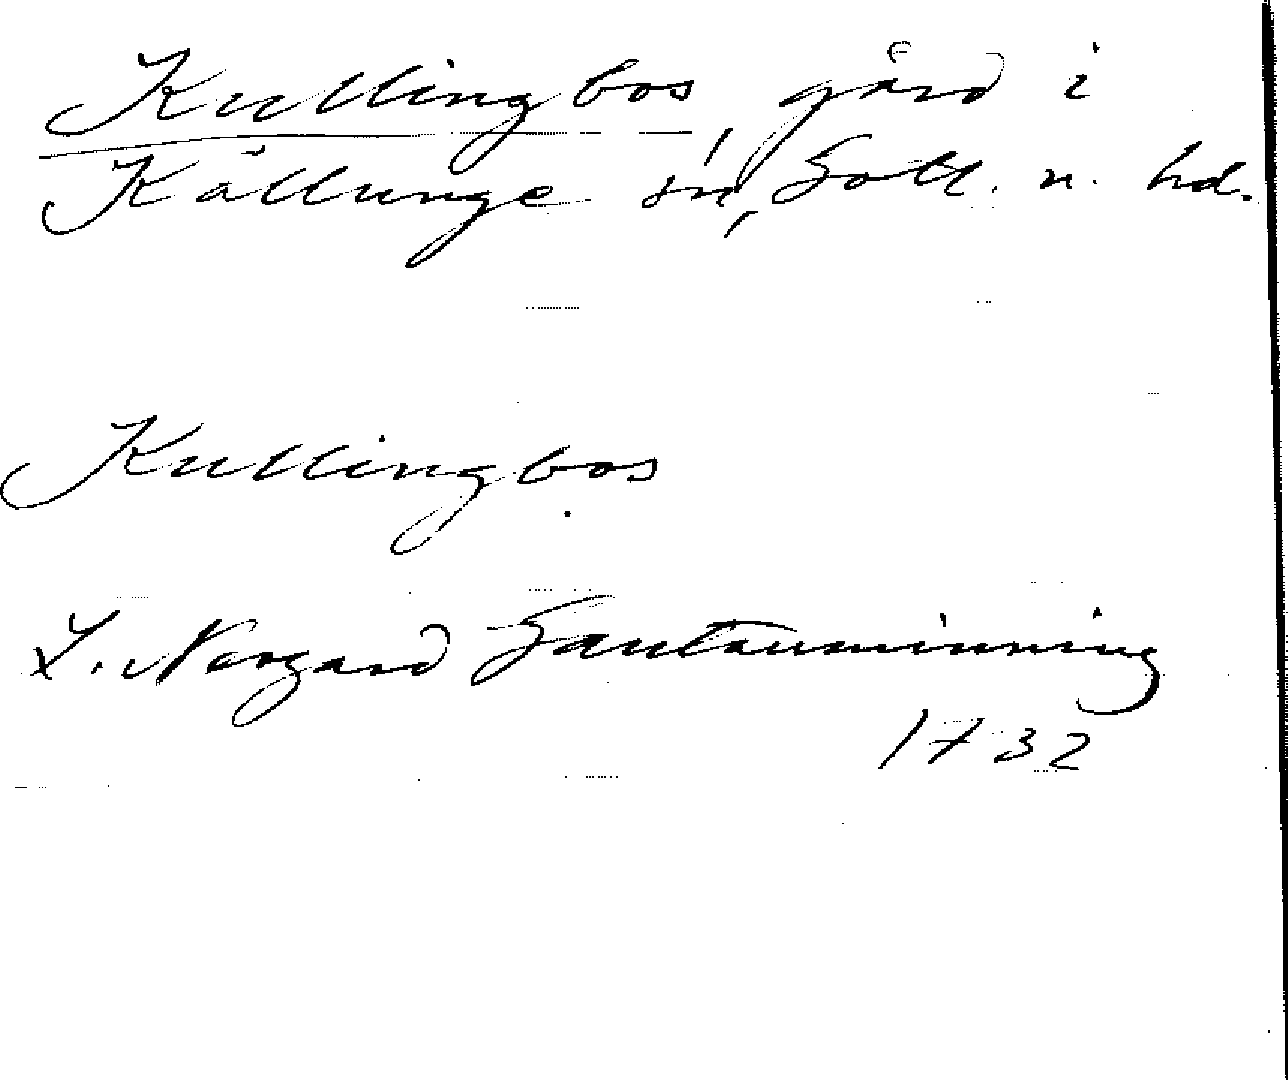 Kullingbos, gård i
Källunge sn, Gotl. n. hd.
Kullingbos
L. Neogard Gautauminning
1732